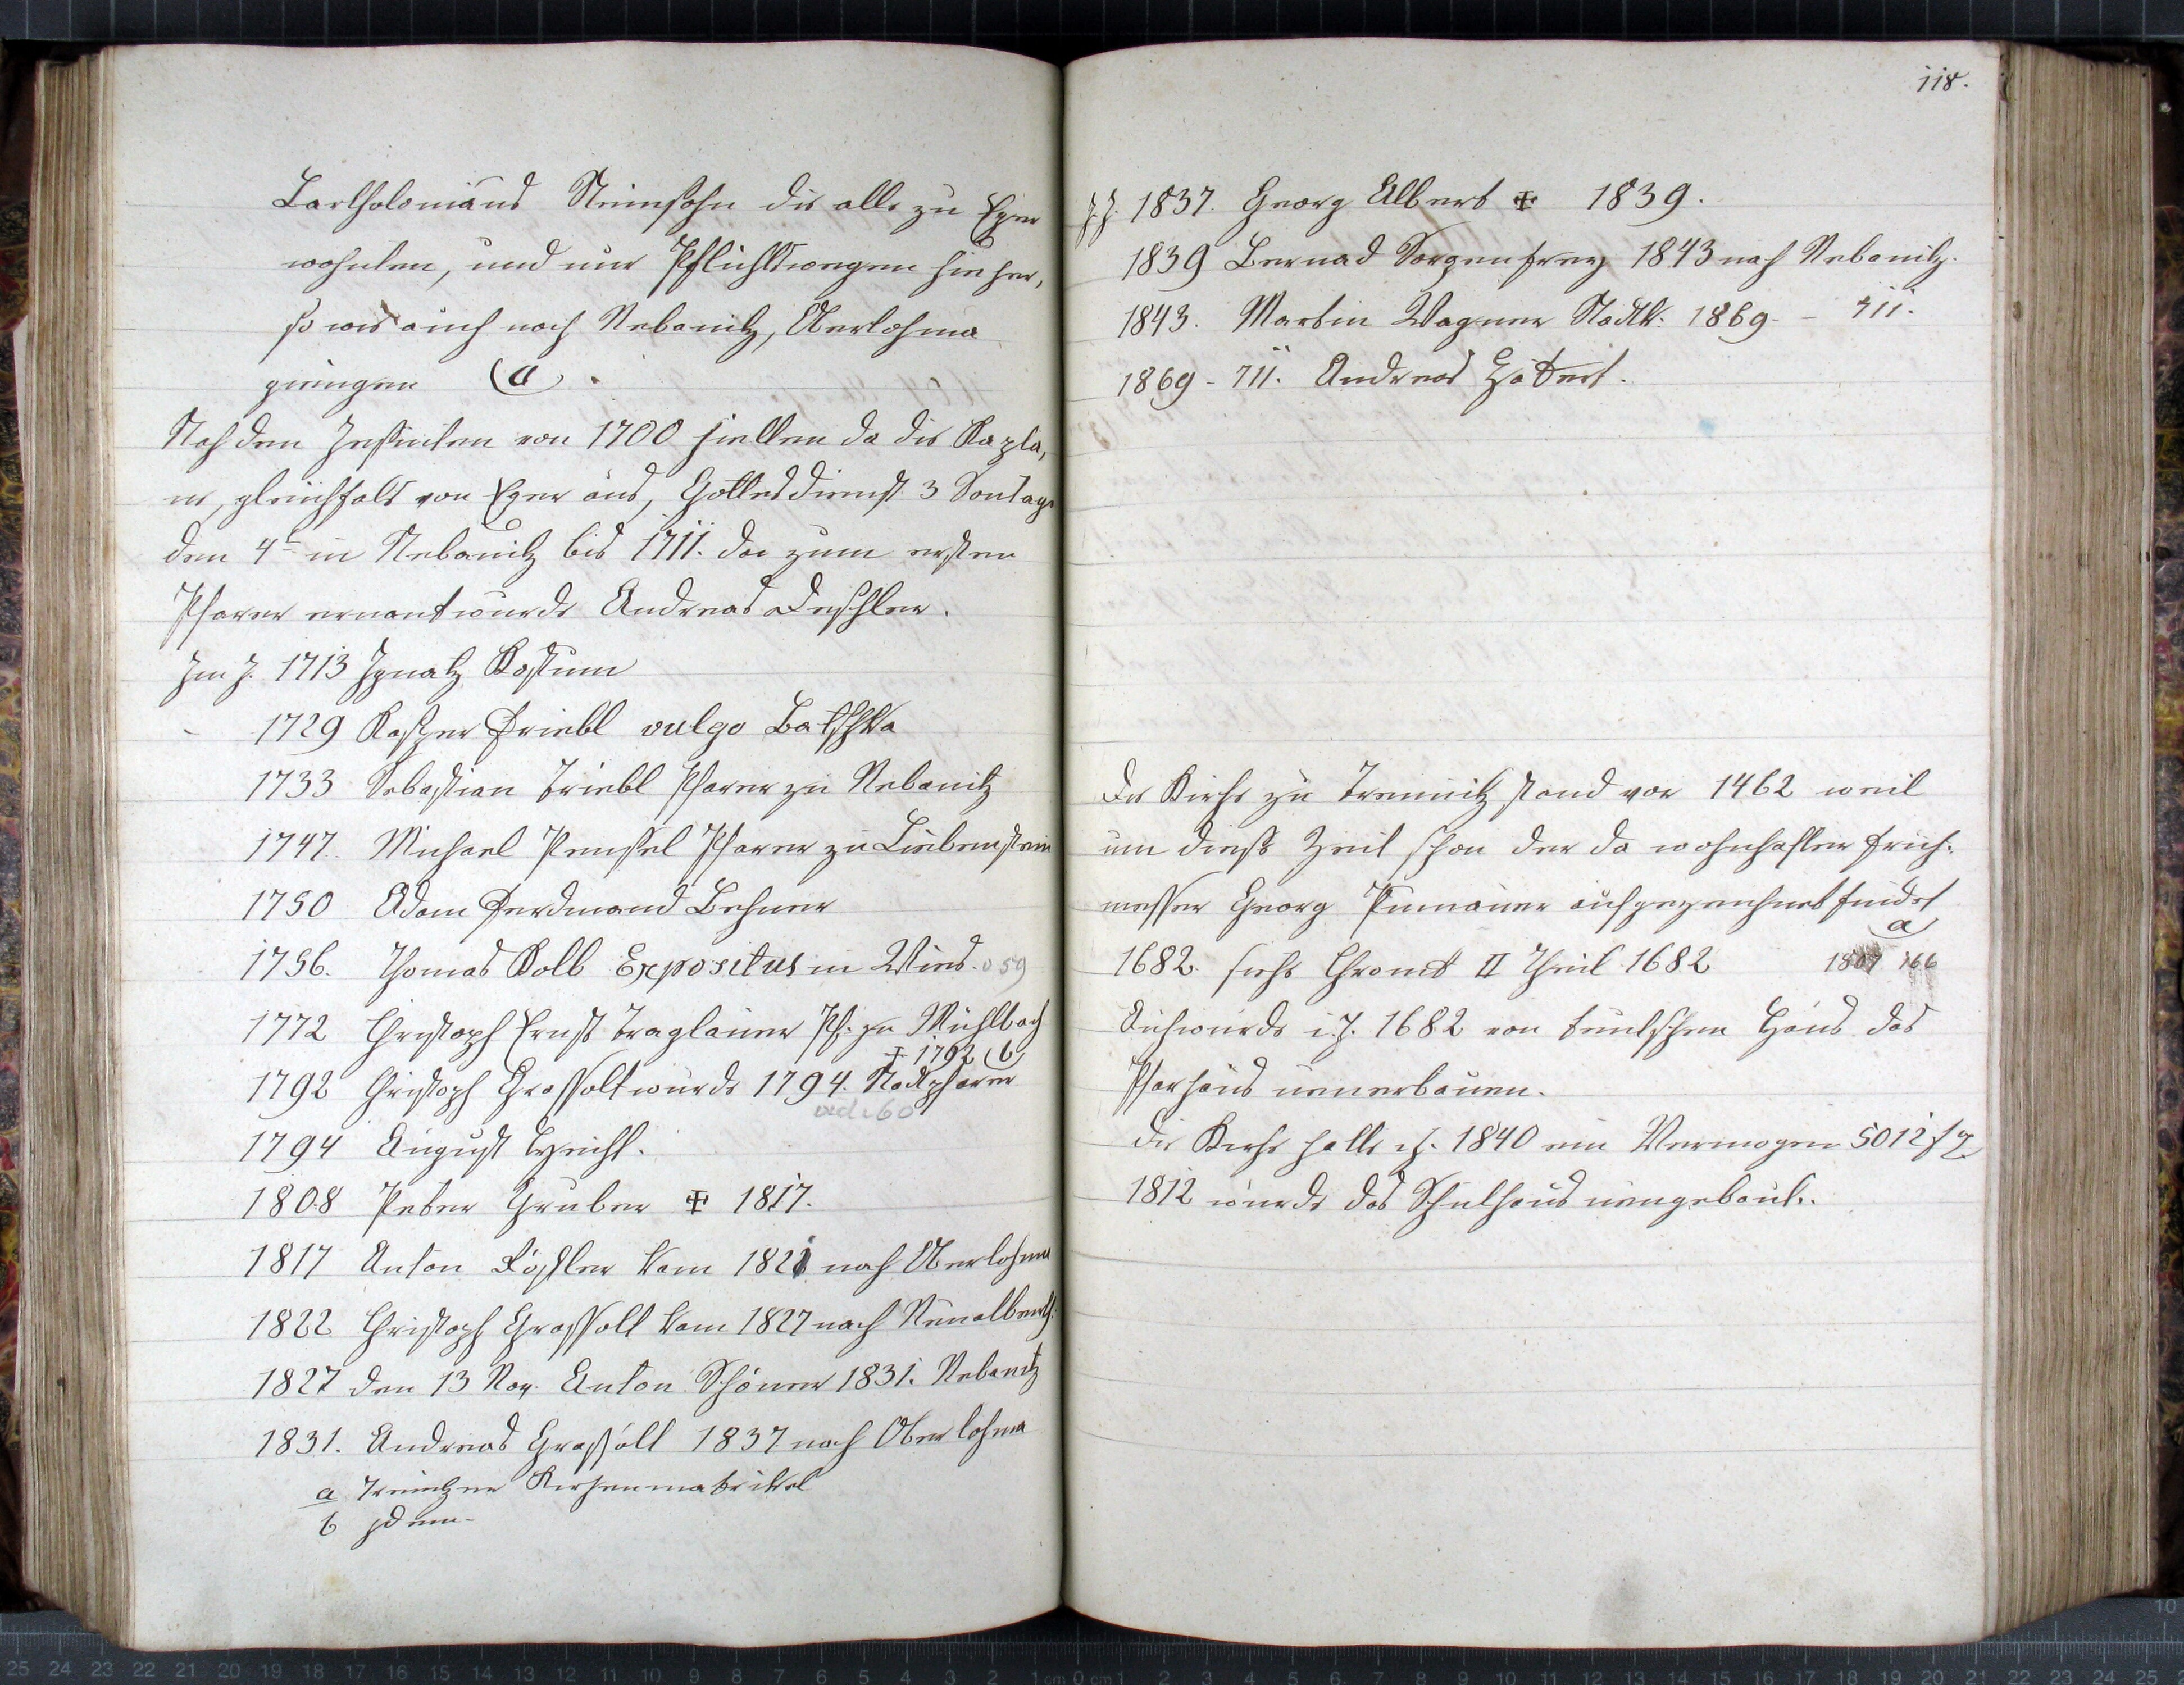 Bartholomäus Steinsohn die alle zu Eger
wohnten, und nur Pflichtwegen hieher,
so wie auch nach Nebanitz, Oberlohma
giengen (a) .
Nach den Jesuiten von 1700 hielten da die Kapla,
ne, gleichfals von Eger aus, Gottesdienst 3 Sontage
den 4t in Nebanitz bis 1711. da zum ersten
Pfarer ernant wurde Andreas Deschler.
Im J. 1713 Ignatz Kostum
- 1729 Kasper Triebl vulgo Batschka
1733 Sebastian Triebl Pfarer zu Nebanitz
1747. Michael Penssel Pfarer zu Liebenstein
1750 Adam Ferdinand Lehner
1756. Thomas Koll Expositus in Wies. 059
1772 Christoph Ernst Traglauer Pf. zu Mühlbach
+ 1792 (b)
1792 Christoph Grassolt wurde 1794. Stadtpfarer
vide 60
1794 August Hecht.
1808 Peter Gruber + 1817.
1817 Anton Köstler kam 1821 nach Oberlohma
1822 Christoph Grassolt kam 1827 nach Neualbenr.
1827 den 13 Nov. Anton Schöner 1831. Nebanitz
1831. Andreas Grassolt 1837 nach Oberlohma
a Trenitzer Kirchenmatrikel
b idem -
118.
i. J. 1837. Georg Albert + 1839.
1839 Bernad Sorgenfrey 1843 nach Nebanitz.
1843. Martin Wagner Stadtk. 1869 - 7/11.
1869 - 7/11. Andreas
Die Kirche zu Trennitz stand vor 1462 weil
um diese Zeit schon der da wohnhafter Früh-
messer Georg aufgezeichnet findet
(a)
1682. siehe Chronik II Theil 1682 1807 166
Auch wurde i. J. 1682 von teutschen Haus das
Pfarhaus neuerbauen.
Die Kirche hatte i. J. 1840 ein Vermogen 5012 f
1812 wurde das Schulhaus neugebaut.